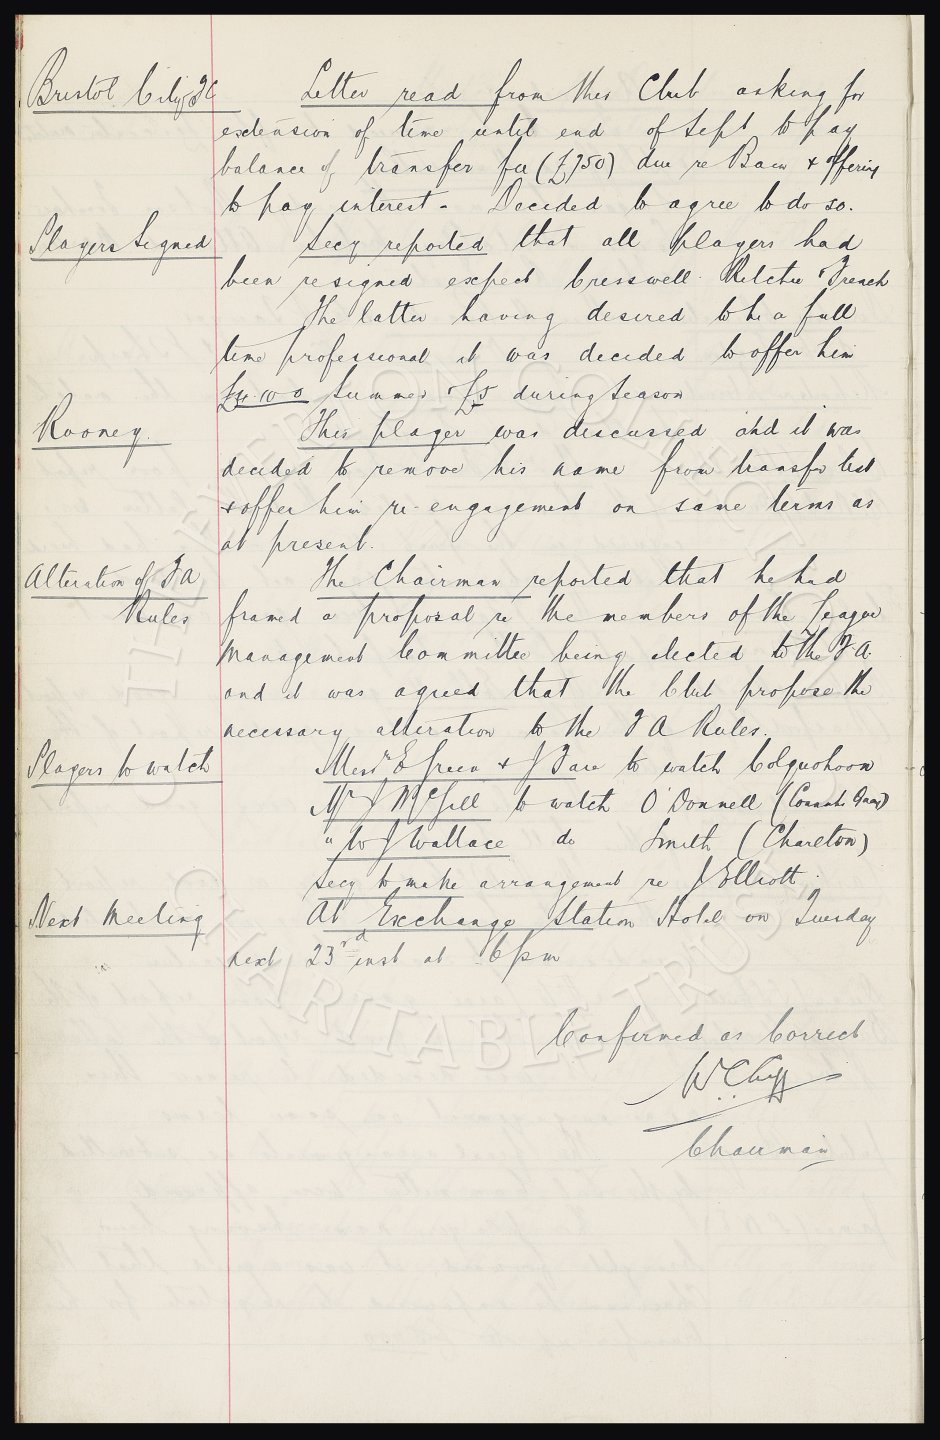 Bristol City FC Letter read from this Club asking for
extension of time until end of Sept to pay
balance of transfer fee (£750) due re Bain & offering
to pay interest. Decided to agree to do so.
Players Signed Secy reported that all players had
been resigned expect Cresswell Ritchie & French
The latter having desired to be a full
time professional it was decided to offer him
£4.10.0 Summer & £5 during Season
Rooney. This player was discussed and it was
decided to remove his name from transfer list
& offer him re-engagement on same terms as
at present.
Alteration of FA The Chairman reported that he had
Rules framed a proposal re the members of the League
Management Committee being elected to the FA.
and it was agreed that the Club propose the
necessary alteration to the FA Rules.
Players to watch Messrs E Green & J Fare to watch Colquohoon
Mr J McGill to watch O'Donnell (Connahs Quay)
" W J Wallace do Smith (Charlton)
Secy to make arrangement re J Elliott.
Next Meeting At Exchange Station Hotel on Tuesday
next 23rd inst at 6pm
Confirmed as Correct
W.C. Cuff
Chairman
THE EVERTON COLLECTION
CHARITABLE TRUST